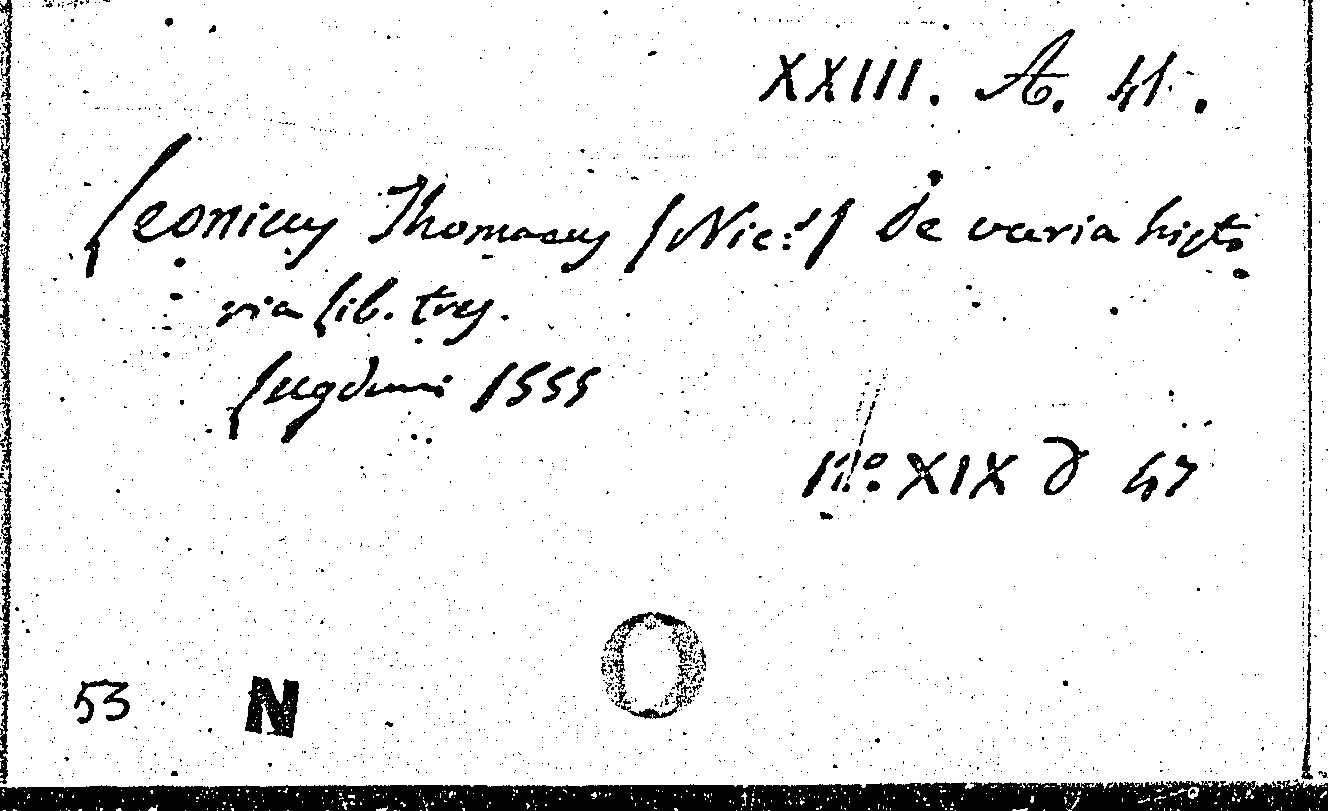 XXIII. A. 41.
Leonicus Thomaeus [Nic:] de varia histo
ria lib. tres.
Lugduni 1555
XIX D 47
53 N O